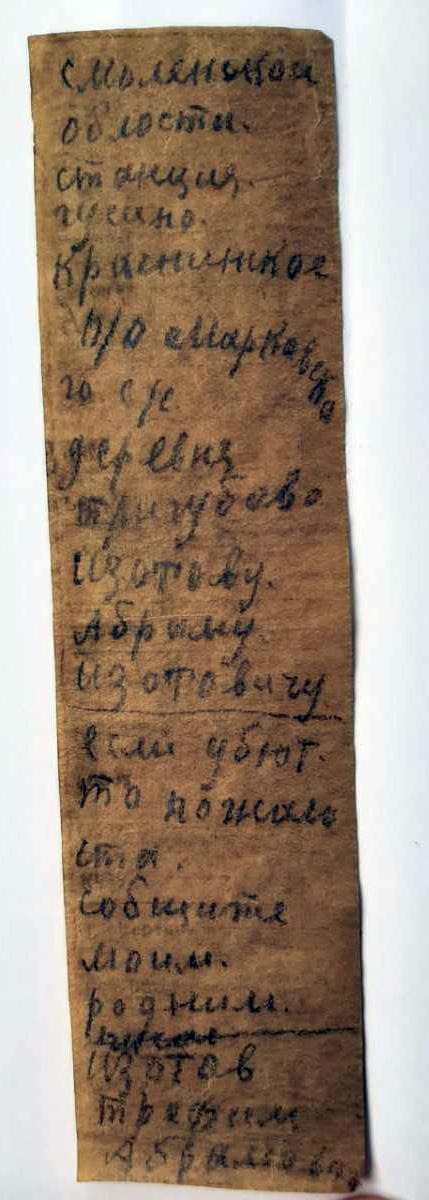 смоленской
области.
станция.
гусино.
Краснинское
п/о Марковска
го с/с
деревня
тригубово
Изотову.
Абраму.
Изотовичу
если убют.
то пожалу
ста.
Собщите
моим.
родним.
Изотов
Трефим
Абрамович